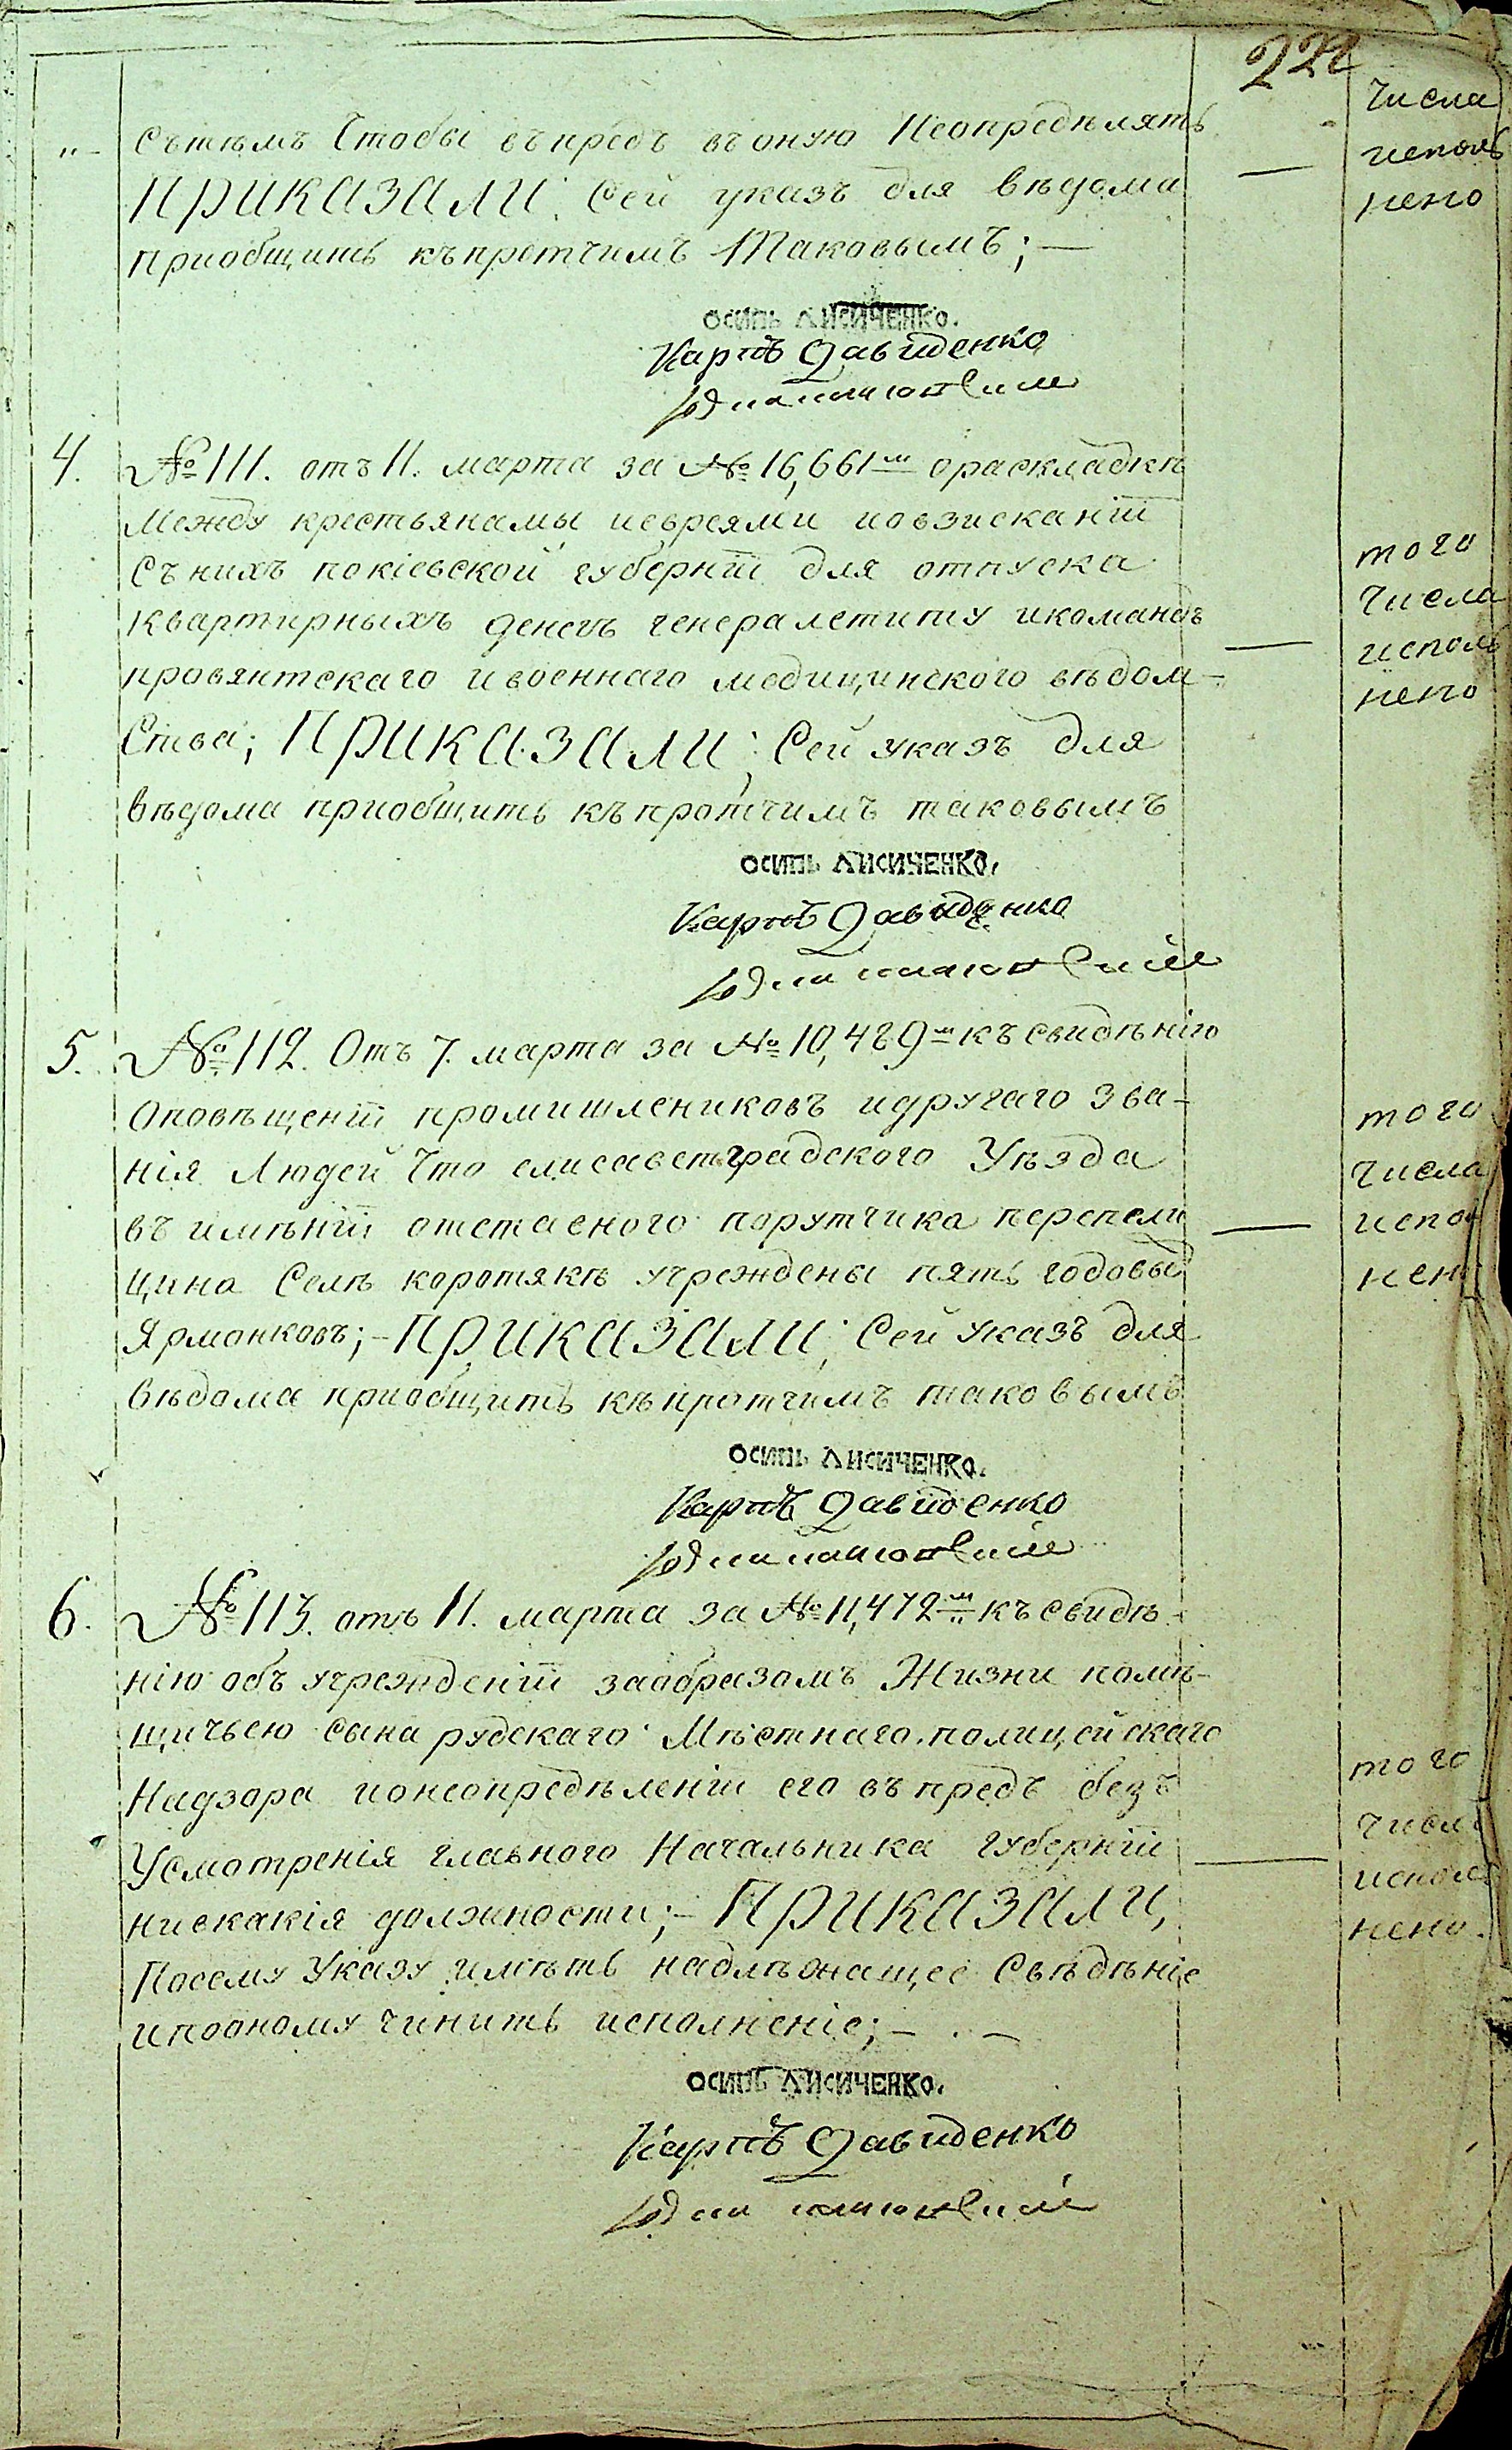 22
"- Сътѣмъ Чтобы въпредъ въоную Неопредѣлять
ПРИКАЗАЛИ: Сей указъ для вѣдома
приобщить къпротчимъ Таковымъ; —
числа
исполь
нено
ОСИПЬ ЛИСИЧЕНКО.
Карпъ Давиденко
4. № 111. отъ 11. марта за № 16,661м ораскладкѣ
Между крестьянамы иевреями иовзисканіи
Съ нихъ покіевской губерніи для отпуска
квартирныхъ денегъ генералетипу икомандъ
провянтскаго ивоеннаго медицинского вѣдом-
Ства; ПРИКАЗАЛИ: Сей указъ для
вѣдома приобщить къпротчимъ таковымъ
того
числа
исполь
нено
ОСИПЬ ЛИСИЧЕНКО.
Карпъ Давиденко
5. № 112. Отъ 7. марта за № 10,489м къ свидѣнію
Оповѣщеніи промишлениковъ идругаго Зва-
нія Людей Что елисаветградского Уѣзда
въ имѣніи отставного порутчика перепели
цина Селѣ коротякѣ учреждены пять годовы
Ярмонковъ; - ПРИКАЗАЛИ: Сей Указъ для
вѣдома приобщить къпротчимъ таковымъ
того
числа
испол
нено
ОСИПЬ ЛИСИЧЕНКО.
Карпъ Давиденко
6. № 113. отъ 11. марта за № 11,472м къ свидѣ-
нію объ учрежденіи заобразомъ Жизни помѣ-
щичьею сына рудскаго Мѣстнаго полицейскаго
Надзора ионеопредѣленіи его въпредъ безъ
Усмотренія главного Начальника губерніи
нискакія должности; - ПРИКАЗАЛИ,
Посему Указу имѣть надлѣжащее Свѣдѣніе
ипооному чинить исполненіе; — . —
того
числа
исполь
нено.
ОСИПЬ ЛИСИЧЕНКО.
Карпъ Давиденко